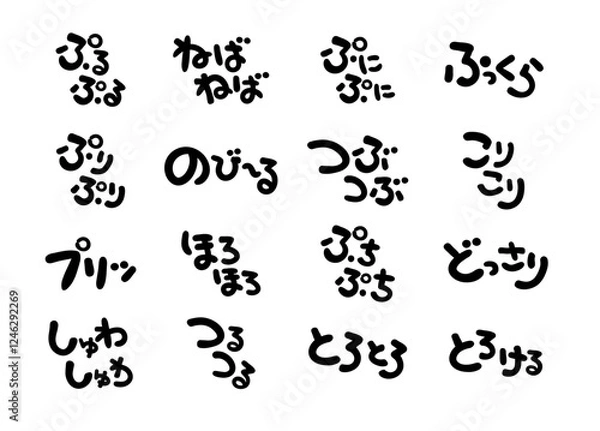 ぷる
ぷる
ねば
ねば
ぷに
ぷに
ぷっくら
ぷり
ぷり
のび〜る
つぶ
つぶ
こり
こり
プリッ
ほろ
ほろ
ぷち
ぷち
どっさり
しゅわ
しゅわ
つる
つる
とろとろ
とろける
Adobe Stock | #1246292269